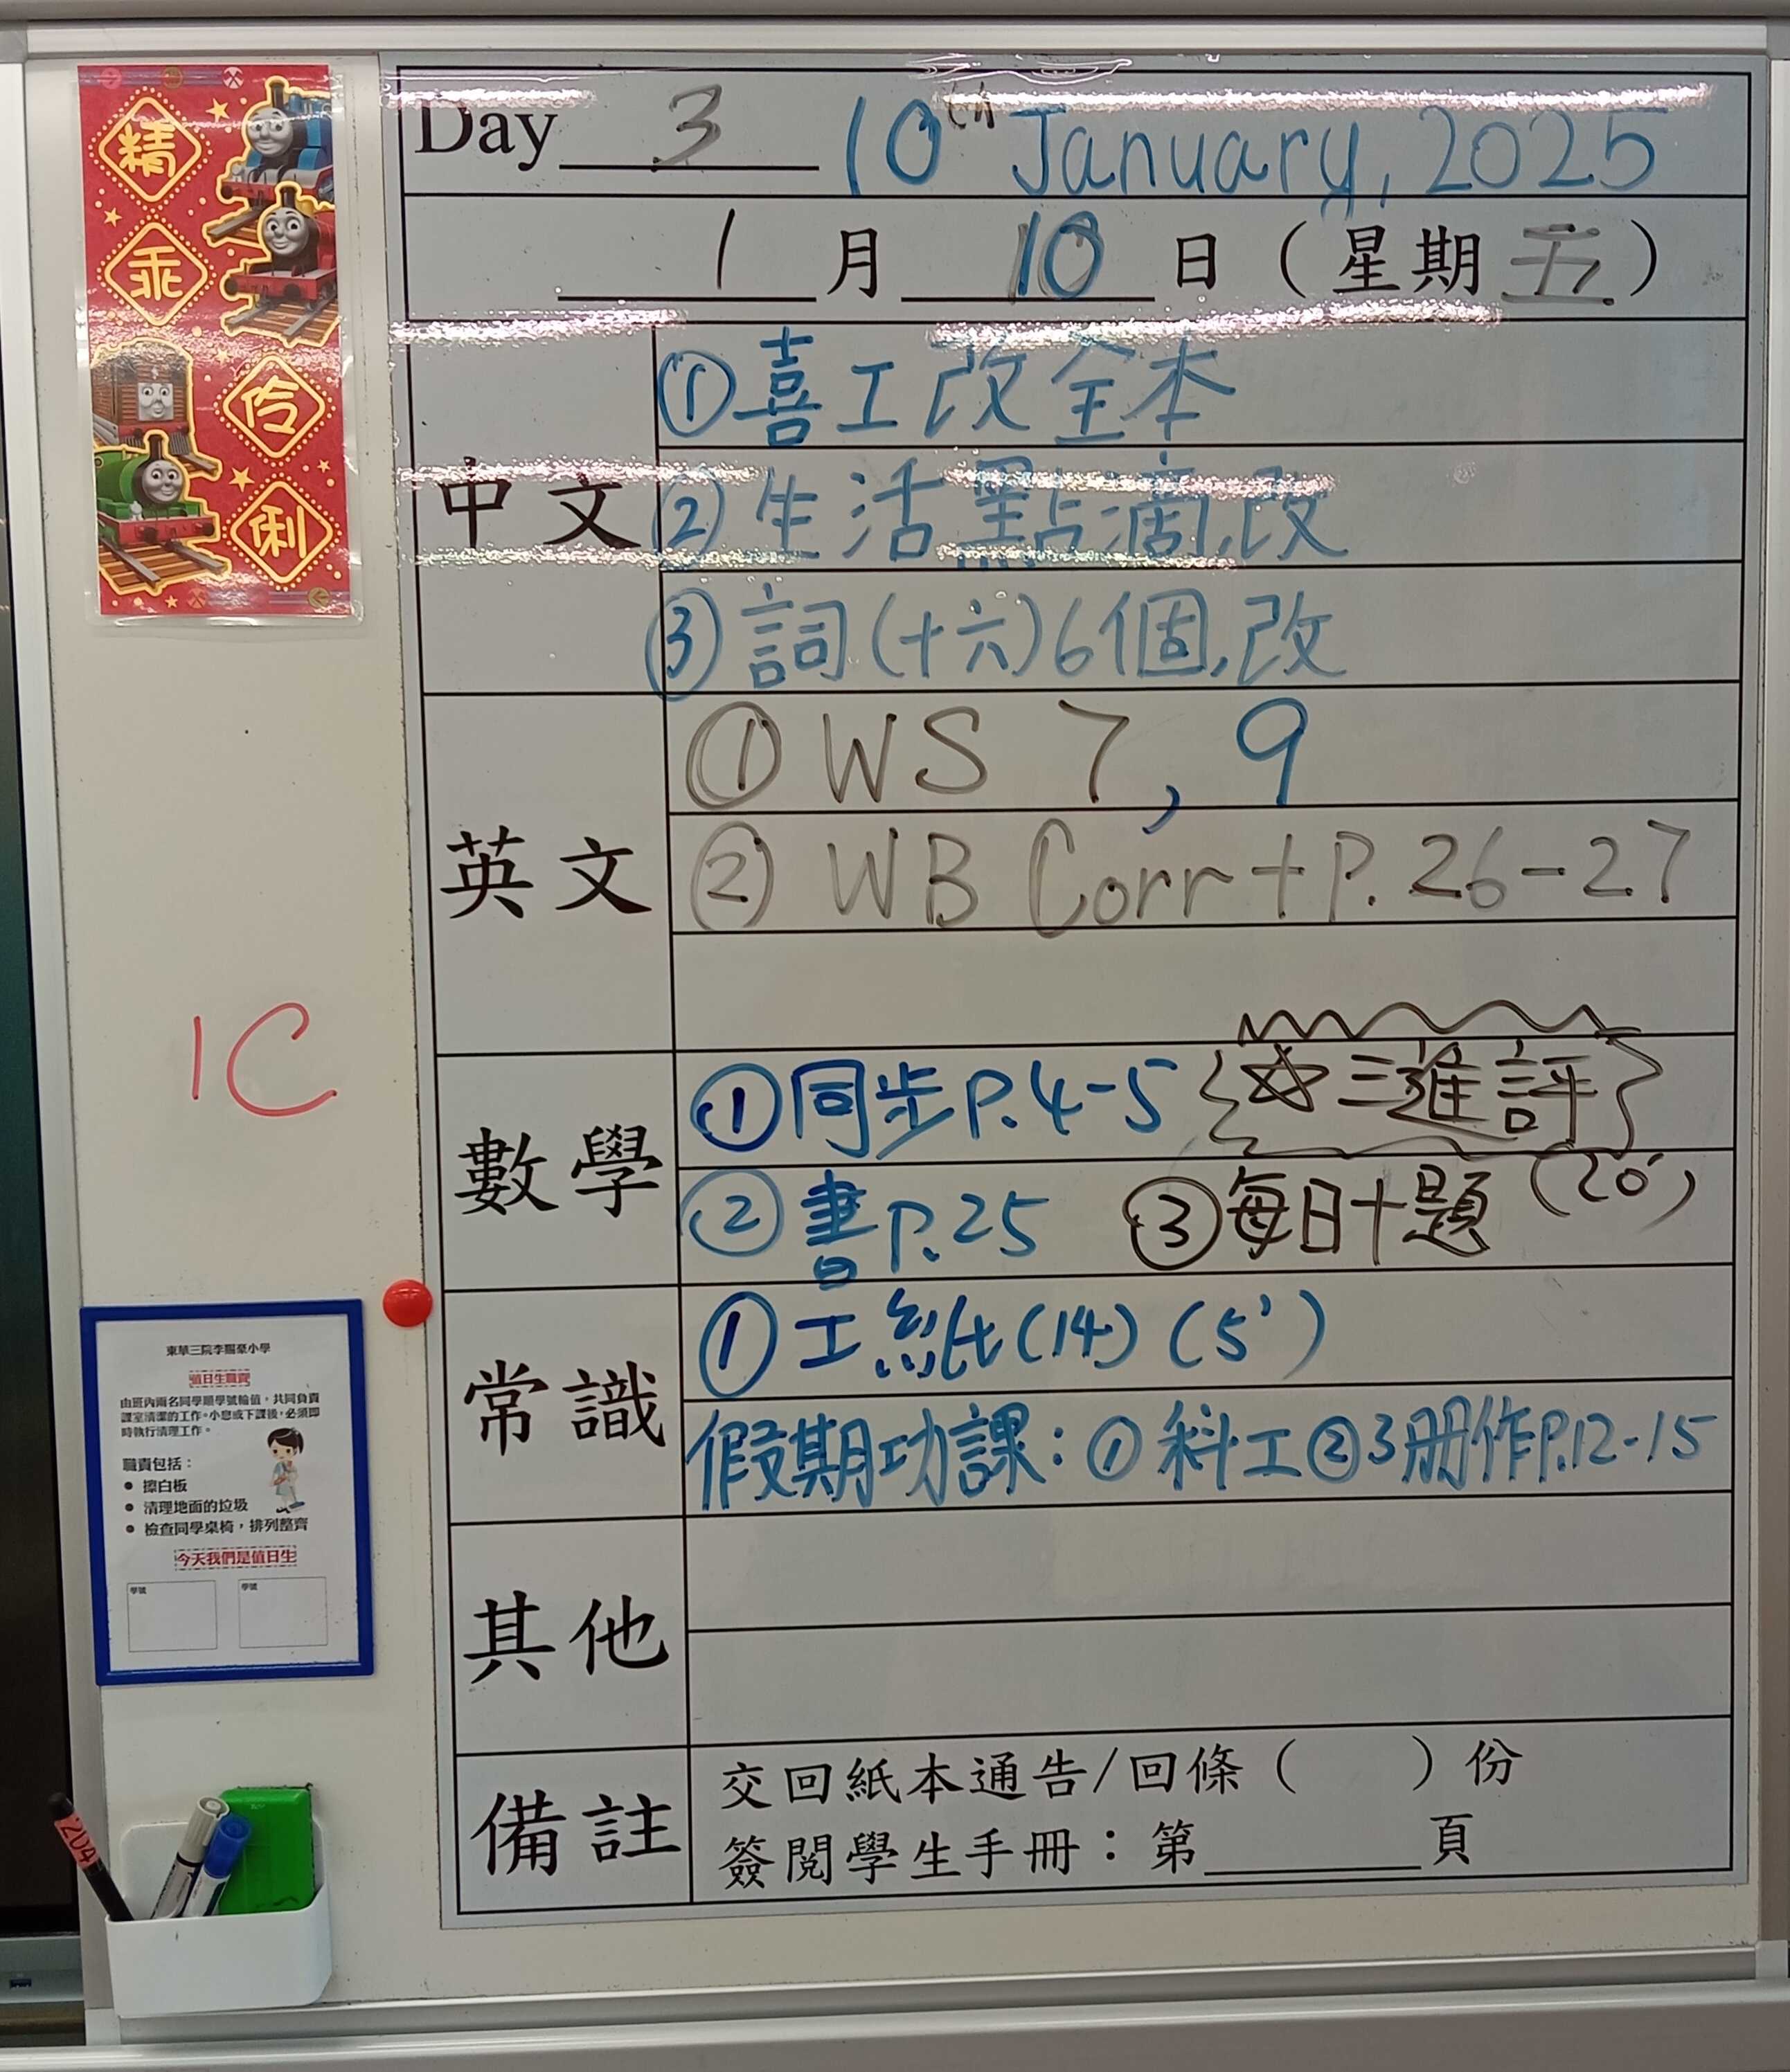 精
乖
伶
俐
Day 3 10th January, 2025
1 月 10 日 ( 星期 五 )
中文
①喜工改全本
②生活點滴,改
③詞(十六)6個,改
英文
① WS 7, 9
② WB Corr + P. 26-27
1C
數學
①同步P.4-5 ☆三進評
②書P.25 ③每日十題 (20')
常識
①工紙(14) (5')
假期功課: ①科工②3冊作P.12-15
其他
備註
交回紙本通告/回條 ( ) 份
簽閱學生手冊:第 頁
東華三院李賜豪小學
值日生職責
由班內兩名同學順學號輪值,共同負責
課室清潔的工作。小息或下課後,必須即
時執行清理工作。
職責包括:
• 擦白板
• 清理地面的垃圾
• 檢查同學桌椅,排列整齊
今天我們是值日生
學號 學號
204